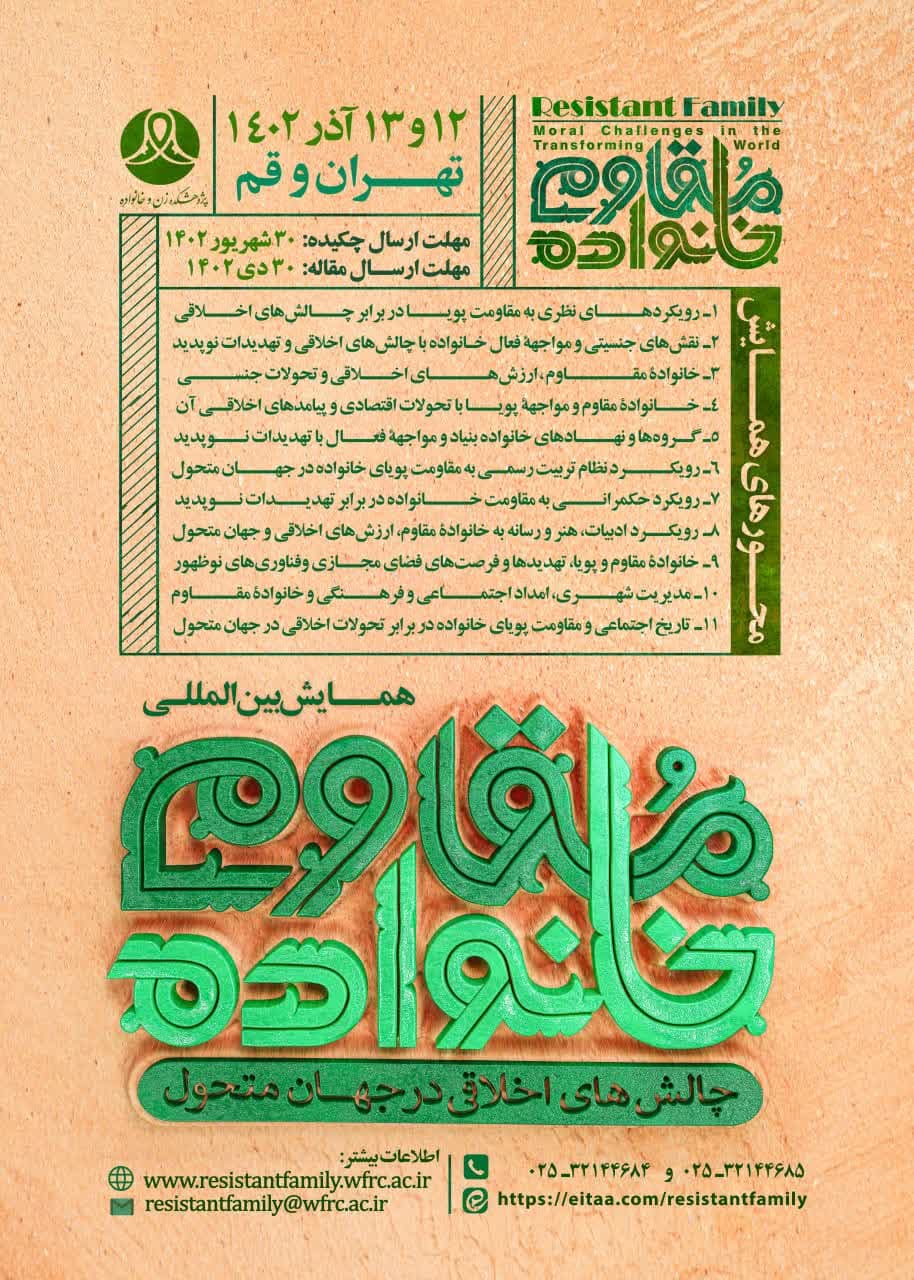 Resistant Family
Moral Challenges in the
Transforming World
خانواده مُقاوم
۱۲ و ۱۳ آذر ۱۴۰۲
تهران و قم
پژوهشکده زن و خانواده
مهلت ارسال چکیده: ۳۰ شهریور ۱۴۰۲
مهلت ارسال مقاله: ۳۰ دی ۱۴۰۲
محورهای همایش
۱ـ رویکردهای نظری به مقاومت پویا در برابر چالش‌های اخلاقی
۲ـ نقش‌های جنسیتی و مواجههٔ فعال خانواده با چالش‌های اخلاقی و تهدیدات نوپدید
۳ـ خانوادهٔ مقاوم، ارزش‌های اخلاقی و تحولات جنسی
۴ـ خانوادهٔ مقاوم و مواجههٔ پویا با تحولات اقتصادی و پیامدهای اخلاقی آن
۵ـ گروه‌ها و نهادهای خانواده بنیاد و مواجههٔ فعال با تهدیدات نوپدید
۶ـ رویکرد نظام تربیت رسمی به مقاومت پویای خانواده در جهان متحول
۷ـ رویکرد حکمرانی به مقاومت خانواده در برابر تهدیدات نوپدید
۸ـ رویکرد ادبیات، هنر و رسانه به خانوادهٔ مقاوم، ارزش‌های اخلاقی و جهان متحول
۹ـ خانوادهٔ مقاوم و پویا، تهدیدها و فرصت‌های فضای مجازی وفناوری‌های نوظهور
۱۰ـ مدیریت شهری، امداد اجتماعی و فرهنگی و خانوادهٔ مقاوم
۱۱ـ تاریخ اجتماعی و مقاومت پویای خانواده در برابر تحولات اخلاقی در جهان متحول
همایش بین‌المللی
خانواده مُقاوم
چالش های اخلاقی در جهان متحول
۰۲۵ـ۳۲۱۴۴۶۸۵ و ۰۲۵ـ۳۲۱۴۴۶۸۴
https://eitaa.com/resistantfamily
اطلاعات بیشتر:
www.resistantfamily.wfrc.ac.ir
resistantfamily@wfrc.ac.ir